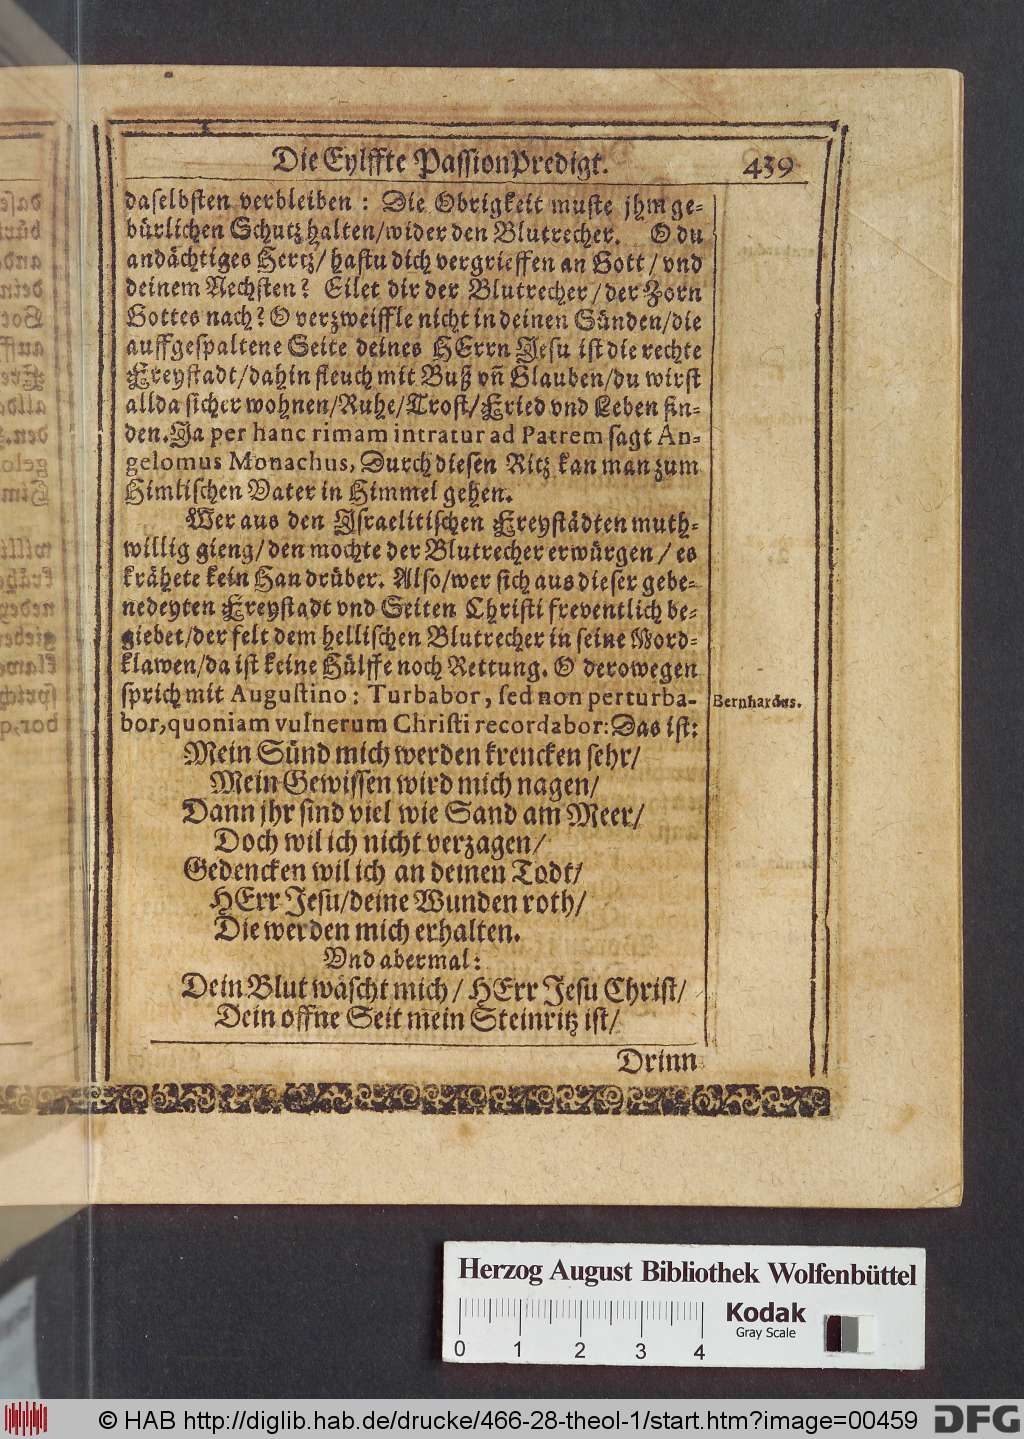 Die Eylffte PassionPredigt. 439
daselbsten verbleiben : Die Obrigkeit muste jhm ge-
bürlichen Schutz halten/wider den Blutrecher. O du
andächtiges Hertz/ hastu dich vergrieffen an Gott/ vnd
deinem Nechsten? Eilet dir der Blutrecher/ der Zorn
Gottes nach? O verzweiffle nicht in deinen Sünden/die
auffgespaltene Seite deines HErrn Jesu ist die rechte
Freystadt/dahin fleuch mit Buß vñ Glauben/du wirst
allda sicher wohnen/Ruhe/Trost/Fried vnd Leben fin-
den. Ja per hanc rimam intratur ad Patrem sagt An-
gelomus Monachus, Durch diesen Ritz kan man zum
Himlischen Vater in Himmel gehen.
Wer aus den Israelitischen Freystädten muth-
willig gieng/den mochte der Blutrecher erwürgen/ es
krähete kein Han drüber. Also/wer sich aus dieser gebe-
nedeyten Freystadt vnd Seiten Christi freventlich be-
giebet/der felt dem hellischen Blutrecher in seine Mord-
klawen/da ist keine Hülffe noch Rettung. O derowegen
sprich mit Augustino: Turbabor, sed non perturba-
Bernhardus.
bor, quoniam vulnerum Christi recordabor: Das ist:
Mein Sünd mich werden krencken sehr/
Mein Gewissen wird mich nagen/
Dann jhr sind viel wie Sand am Meer/
Doch wil ich nicht verzagen/
Gedencken wil ich an deinen Todt/
HErr Jesu/deine Wunden roth/
Die werden mich erhalten.
Vnd abermal:
Dein Blut wäscht mich/ HErr Jesu Christ/
Dein offne Seit mein Steinritz ist/
Drinn
Herzog August Bibliothek Wolfenbüttel
Kodak
Gray Scale
0 1 2 3 4
© HAB http://diglib.hab.de/drucke/466-28-theol-1/start.htm?image=00459
DFG